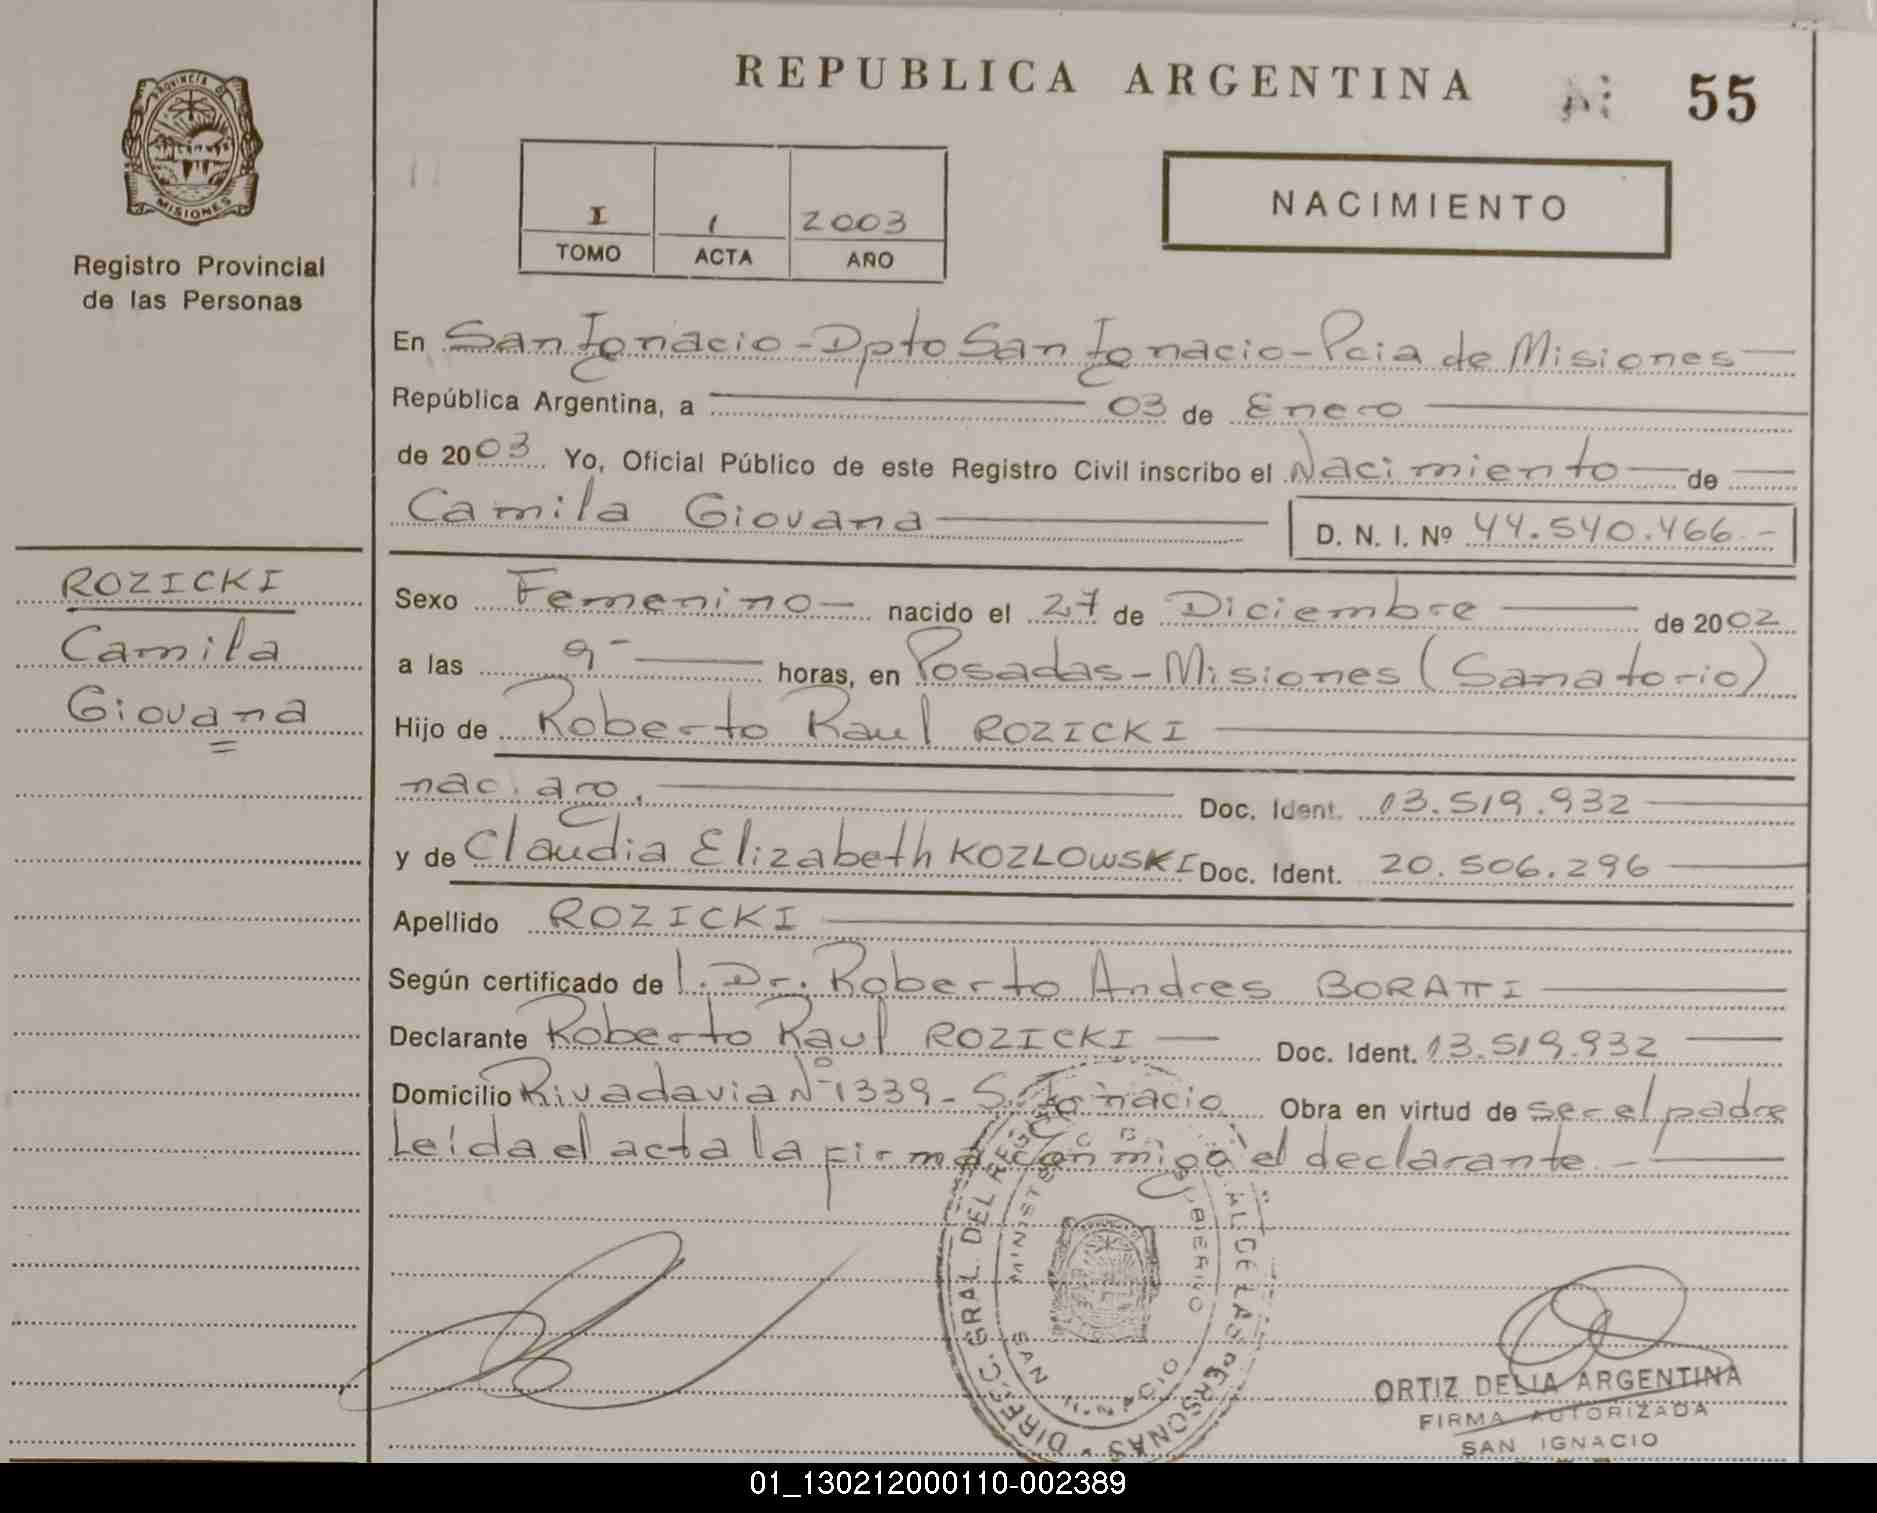 REPUBLICA ARGENTINA
55
PROVINCIA D
MISIONES
Registro Provincial
de las Personas
I 1 2003
TOMO ACTA AÑO
NACIMIENTO
En San Ignacio - Dpto San Ignacio - Pcia de Misiones
República Argentina, a 03 de Enero
de 2003. Yo, Oficial Público de este Registro Civil inscribo el Nacimiento de
Camila Giovana D. N. I. Nº 44.540.466.-
ROZICKI
Camila
Giovana
Sexo Femenino nacido el 27 de Diciembre de 2002
a las 9 horas, en Posadas - Misiones (Sanatorio)
Hijo de Roberto Raul ROZICKI
nac. arg. Doc. Ident. 13.519.932
y de Claudia Elizabeth KOZLOWSKI Doc. Ident. 20.506.296
Apellido ROZICKI
Según certificado de l. Dr. Roberto Andres BORATTI
Declarante Roberto Raul ROZICKI Doc. Ident. 13.519.932
Domicilio Rivadavia Nº 1339 - S. Ignacio Obra en virtud de ser el padre
Leída el acta la firma conmigo el declarante.-
DIREC. GRAL. DEL REG DE LAS PERSONAS
SAN IGNACIO
ORTIZ DELIA ARGENTINA
FIRMA AUTORIZADA
SAN IGNACIO
01_130212000110-002389